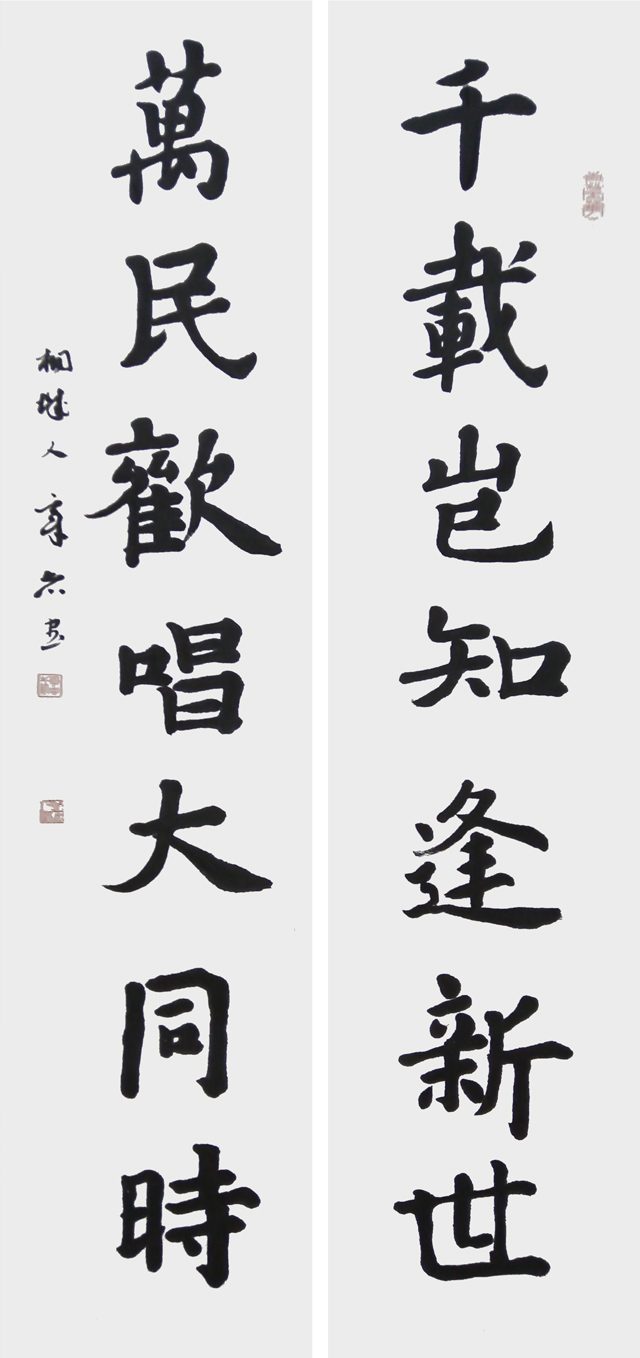 千載岂知逢新世
萬民歡唱大同時
桐城人章六書